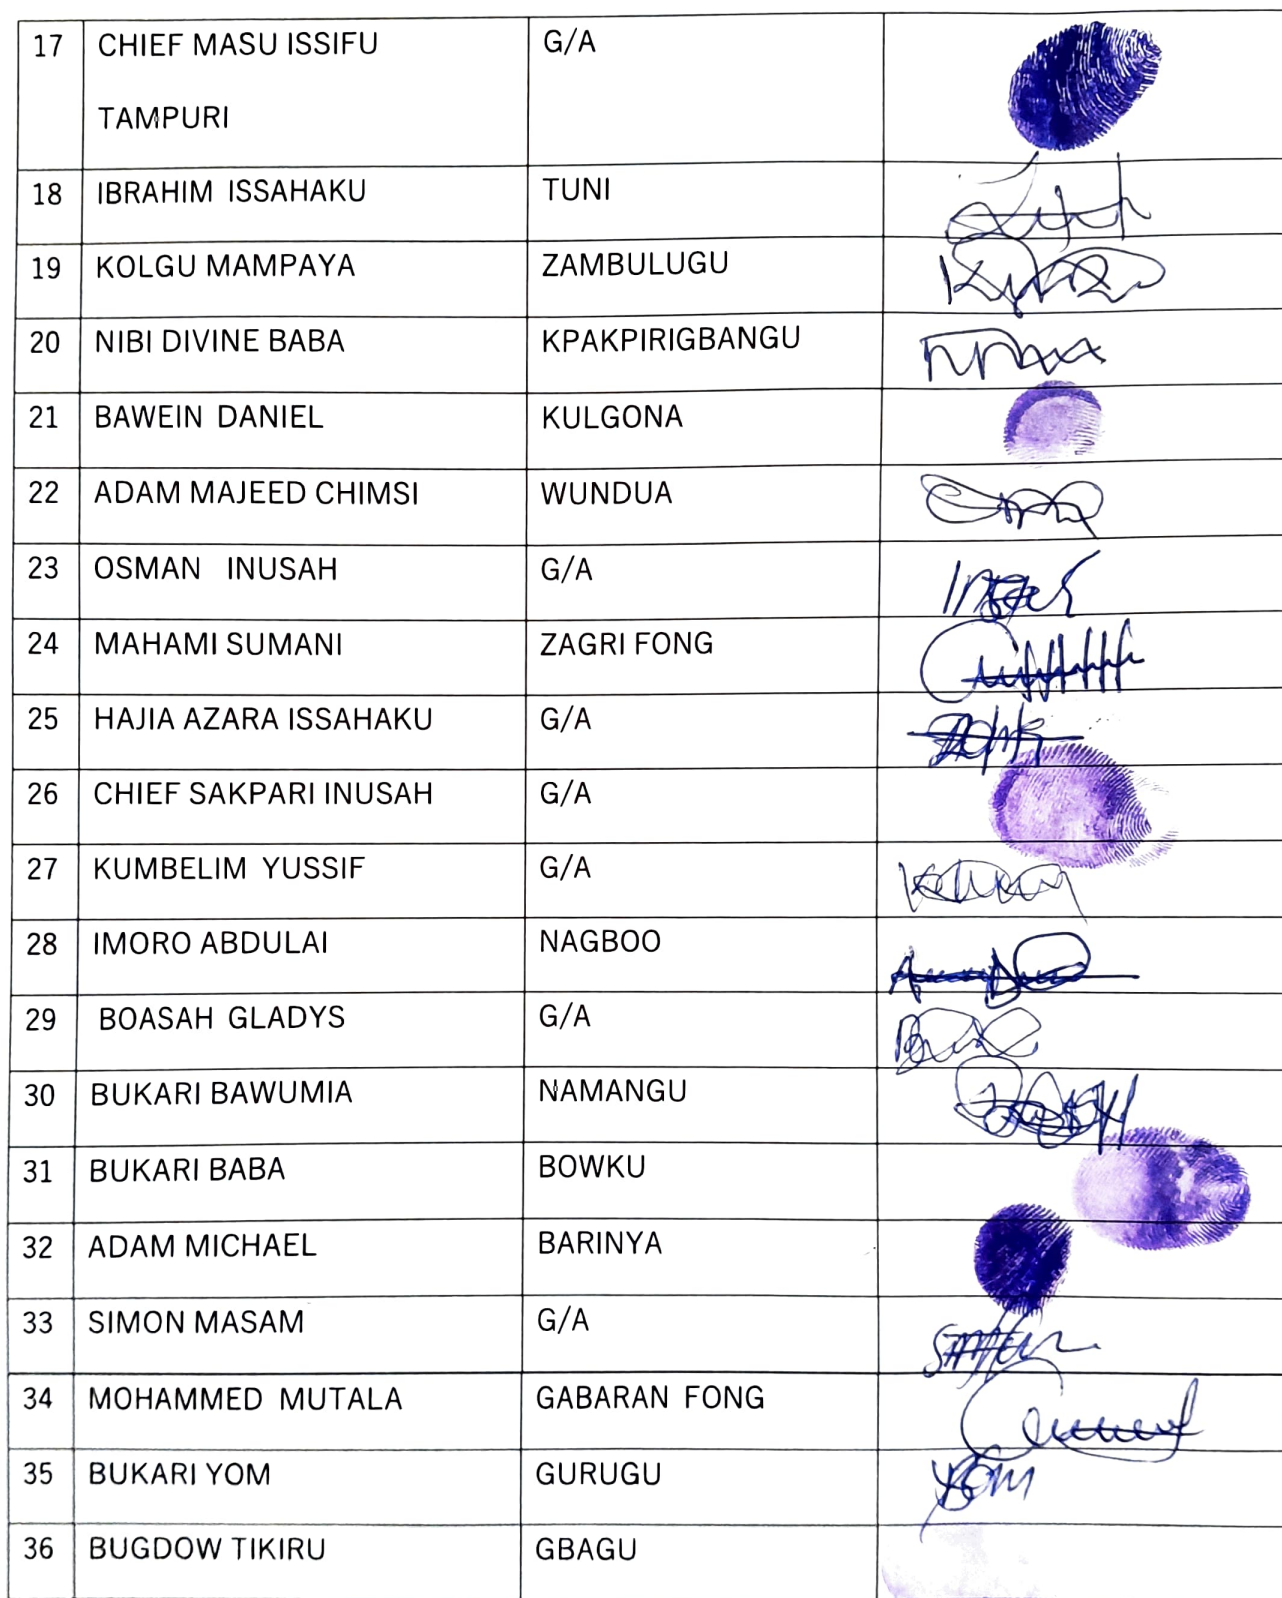 17 CHIEF MASU ISSIFU G/A
TAMPURI
18 IBRAHIM ISSAHAKU TUNI
19 KOLGU MAMPAYA ZAMBULUGU
20 NIBI DIVINE BABA KPAKPIRIGBANGU
21 BAWEIN DANIEL KULGONA
22 ADAM MAJEED CHIMSI WUNDUA
23 OSMAN INUSAH G/A
24 MAHAMI SUMANI ZAGRI FONG
25 HAJIA AZARA ISSAHAKU G/A
26 CHIEF SAKPARI INUSAH G/A
27 KUMBELIM YUSSIF G/A
28 IMORO ABDULAI NAGBOO
29 BOASAH GLADYS G/A
30 BUKARI BAWUMIA NAMANGU
31 BUKARI BABA BOWKU
32 ADAM MICHAEL BARINYA
33 SIMON MASAM G/A
34 MOHAMMED MUTALA GABARAN FONG
35 BUKARI YOM GURUGU
36 BUGDOW TIKIRU GBAGU